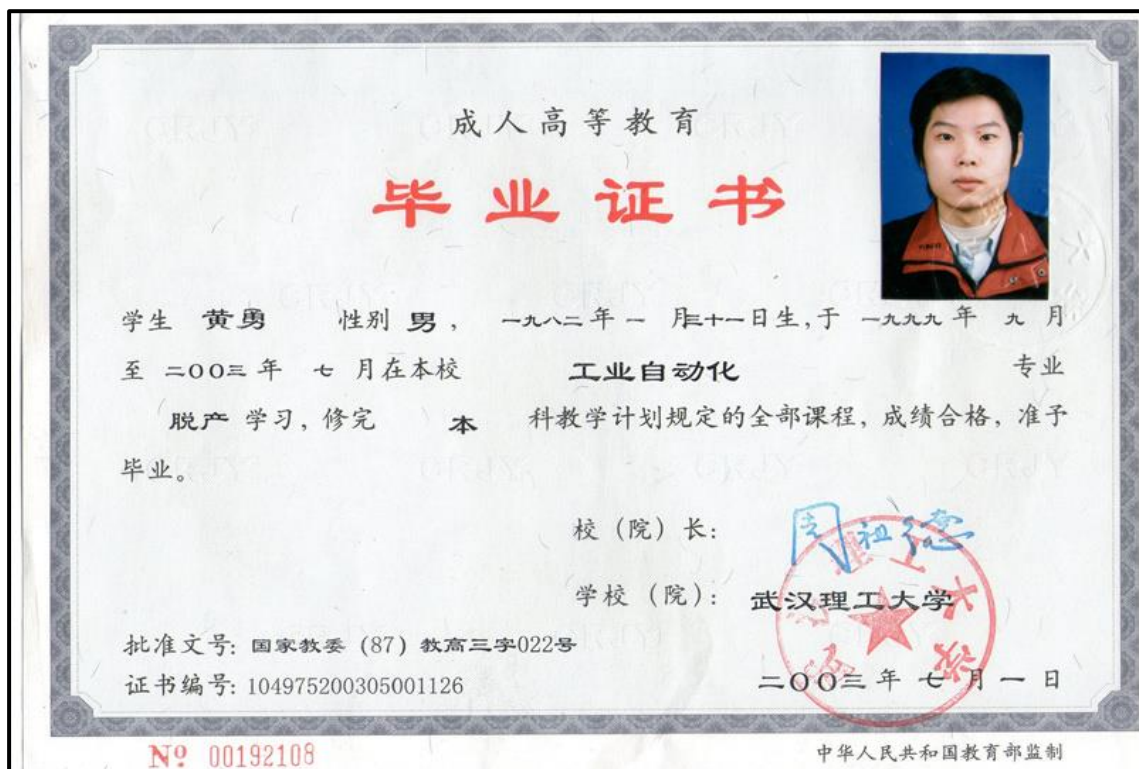 成人高等教育
毕业证书
学生 黄勇 性别 男， 一九八二年 一 月三十一日生，于 一九九九年 九 月
至 二〇〇三年 七 月在本校 工业自动化 专业
脱产 学习，修完 本 科教学计划规定的全部课程，成绩合格，准予
毕业。
校（院）长： 周祖德
学校（院）： 武汉理工大学
批准文号: 国家教委 (87) 教高三字022号
证书编号: 104975200305001126
二〇〇三年 七 月 一 日
№ 00192108
中华人民共和国教育部监制